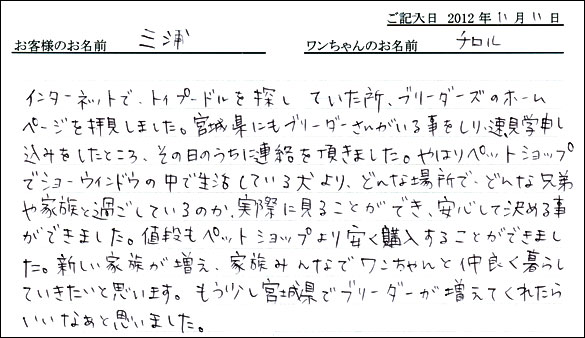 ご記入日 2012年11月11日
お客様のお名前 三浦 ワンちゃんのお名前 チロル
インターネットで、トイプードルを探し ていた所、ブリーダーズのホーム
ページを拝見しました。宮城県にもブリーダーさんがいる事をしり、速見学申し
込みをしたところ、その日のうちに連絡を頂きました。やはりペットショップ
でショーウインドウの中で生活している犬より、どんな場所で、どんな兄弟
や家族と過ごしているのか、実際に見ることができ、安心して決める事
ができました。値段もペットショップより安く購入することができまし
た。新しい家族が増え、家族みんなでワンちゃんと仲良く暮らし
ていきたいと思います。もう少し宮城県でブリーダーが増えてくれたら
いいなぁと思いました。